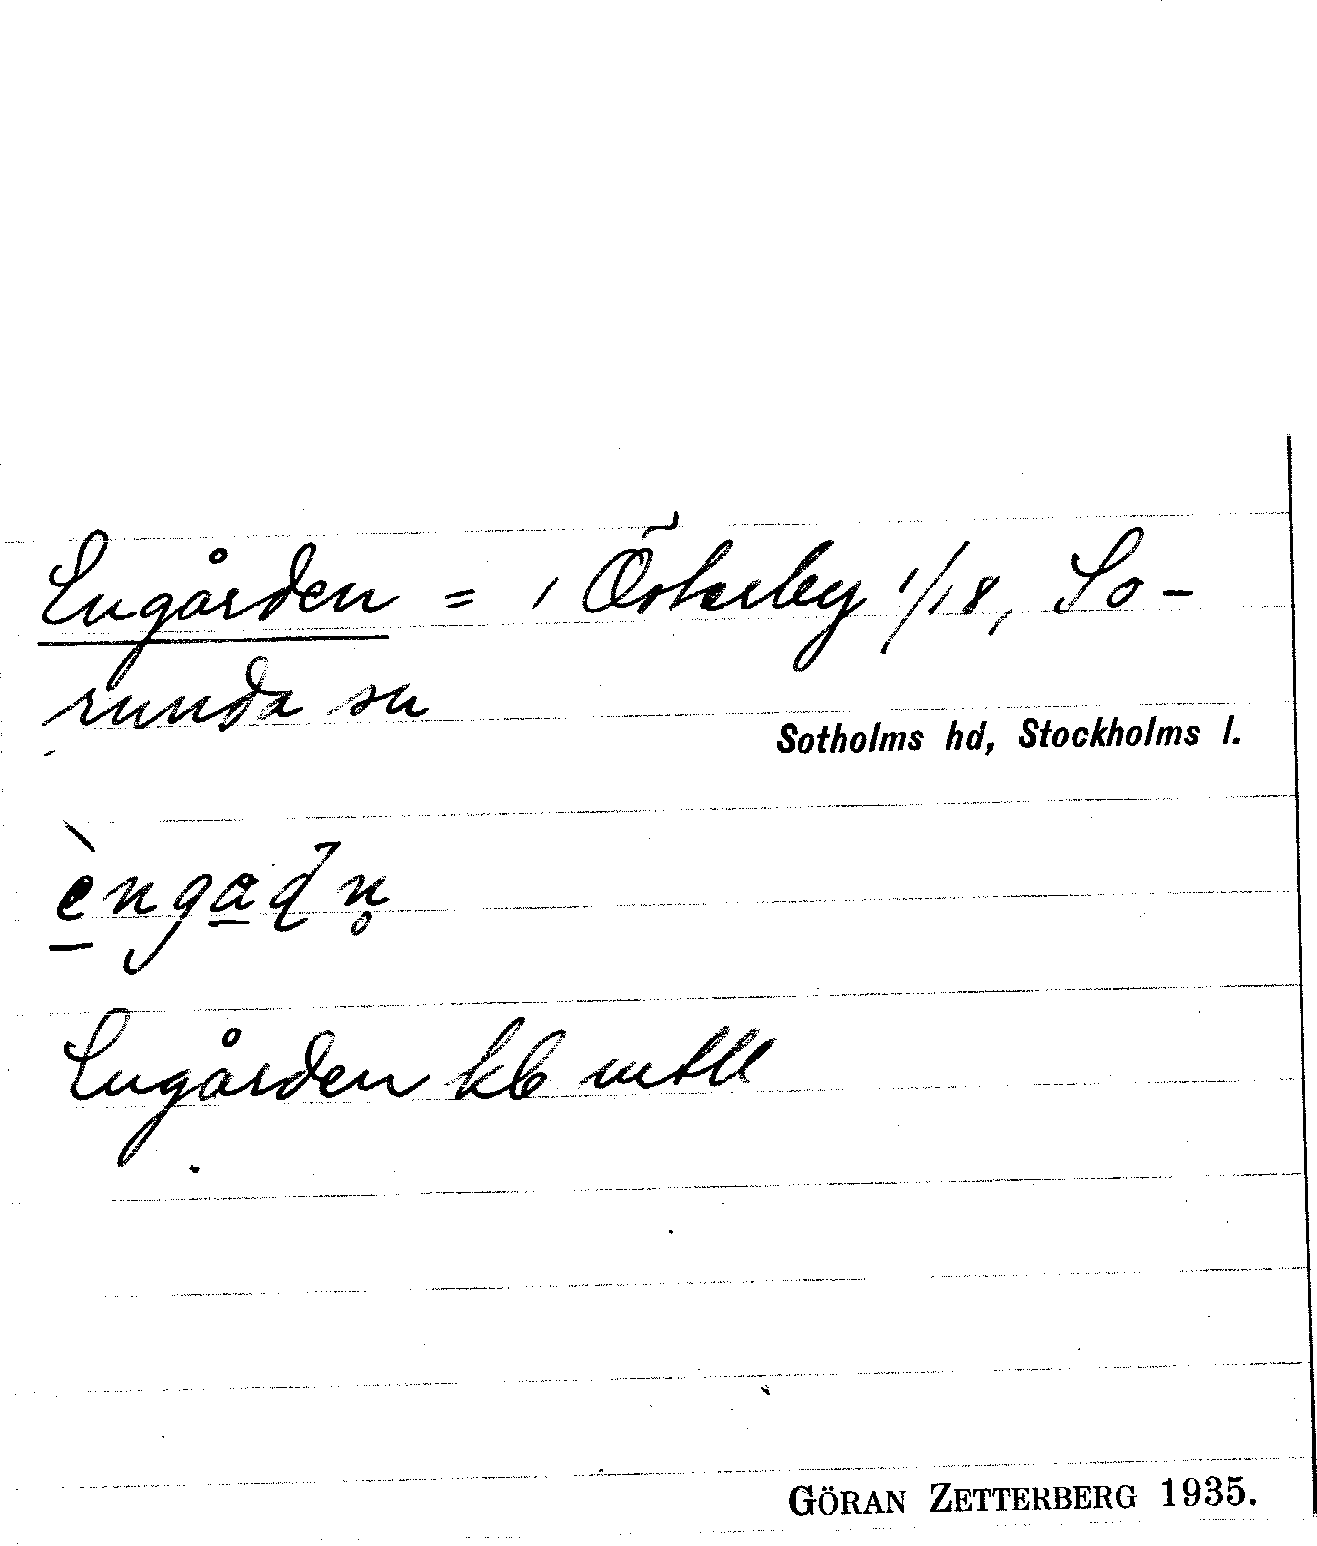 Engården = i Österby 1/18, So-
runda sn
Sotholms hd, Stockholms l.
èngaḍn̥
Engården kb mtll
GÖRAN ZETTERBERG 1935.